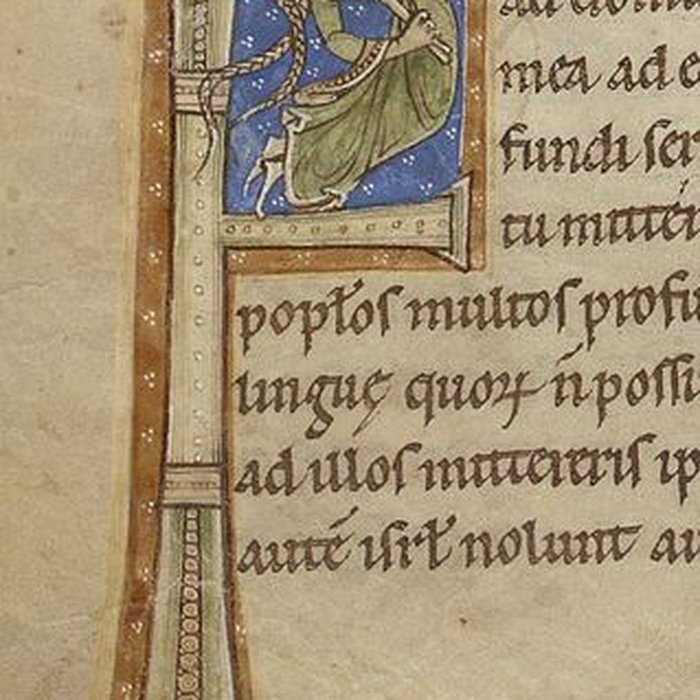 ad domu
mea ad e
fundi ser
tu mitteri
popłos multos profu
linguę quoꝝ n̄ possi
ad illos mittereris ip
autē isrł nolunt au